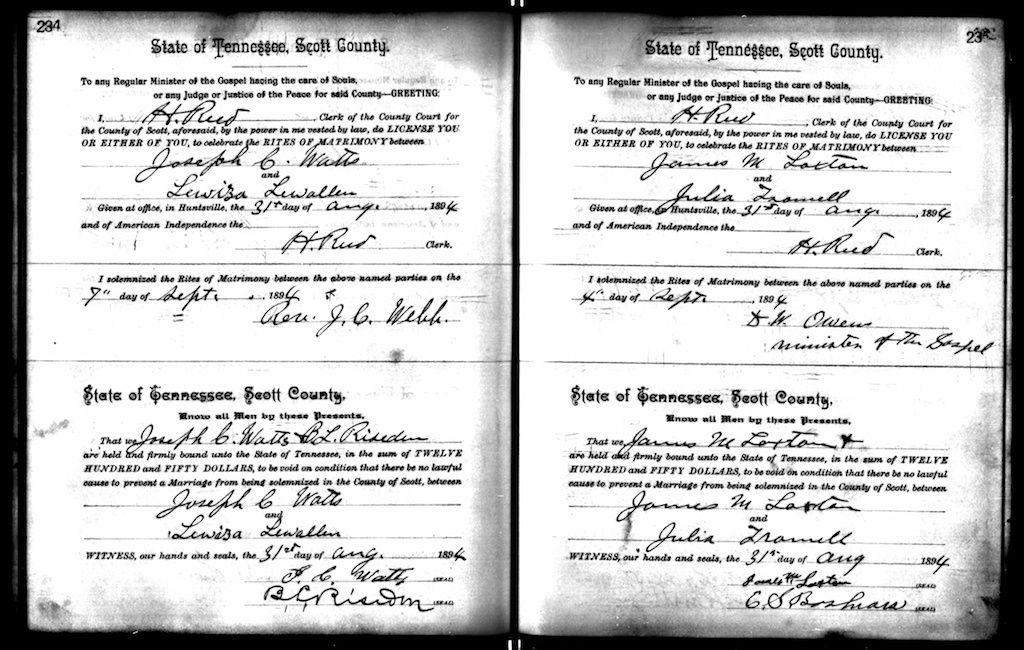 234
State of Tennessee, Scott County.
To any Regular Minister of the Gospel having the care of Souls,
or any Judge or Justice of the Peace for said County—GREETING:
I, H. Reed, Clerk of the County Court for
the County of Scott, aforesaid, by the power in me vested by law, do LICENSE YOU
OR EITHER OF YOU, to celebrate the RITES OF MATRIMONY between
Joseph C. Watts
and
Lewiza Lewallen
Given at office, in Huntsville, the 31st day of Aug. , 1894
and of American Independence the
H. Reed Clerk.
I solemnized the Rites of Matrimony between the above named parties on the
7" day of Sept. , 1894
Rev. J. C. Webb.
State of Tennessee, Scott County,
Know all Men by these Presents,
That we, Joseph C. Watts & B L Riseden
are held and firmly bound unto the State of Tennessee, in the sum of TWELVE
HUNDRED and FIFTY DOLLARS, to be void on condition that there be no lawful
cause to prevent a Marriage from being solemnized in the County of Scott, between
Joseph C Watts
and
Lewiza Lewallen
WITNESS, our hands and seals, the 31st day of Aug. 1894
J. C. Watts (SEAL)
(SEAL)
State of Tennessee, Scott County.
To any Regular Minister of the Gospel having the care of Souls,
or any Judge or Justice of the Peace for said County—GREETING:
I, H. Reed, Clerk of the County Court for
the County of Scott, aforesaid, by the power in me vested by law, do LICENSE YOU
OR EITHER OF YOU, to celebrate the RITES OF MATRIMONY between
James M Loxton
and
Julia Tramell
Given at office, in Huntsville, the 31st day of Aug. , 1894
and of American Independence the
H. Reed Clerk.
I solemnized the Rites of Matrimony between the above named parties on the
4" day of Sept. , 1894
W. Owens
minister of the Gospel
State of Tennessee, Scott County,
Know all Men by these Presents,
That we, James M Loxton &
are held and firmly bound unto the State of Tennessee, in the sum of TWELVE
HUNDRED and FIFTY DOLLARS, to be void on condition that there be no lawful
cause to prevent a Marriage from being solemnized in the County of Scott, between
James M Loxton
and
Julia Tramell
WITNESS, our hands and seals, the 31st day of Aug 1894
Loxton (SEAL)
(SEAL)